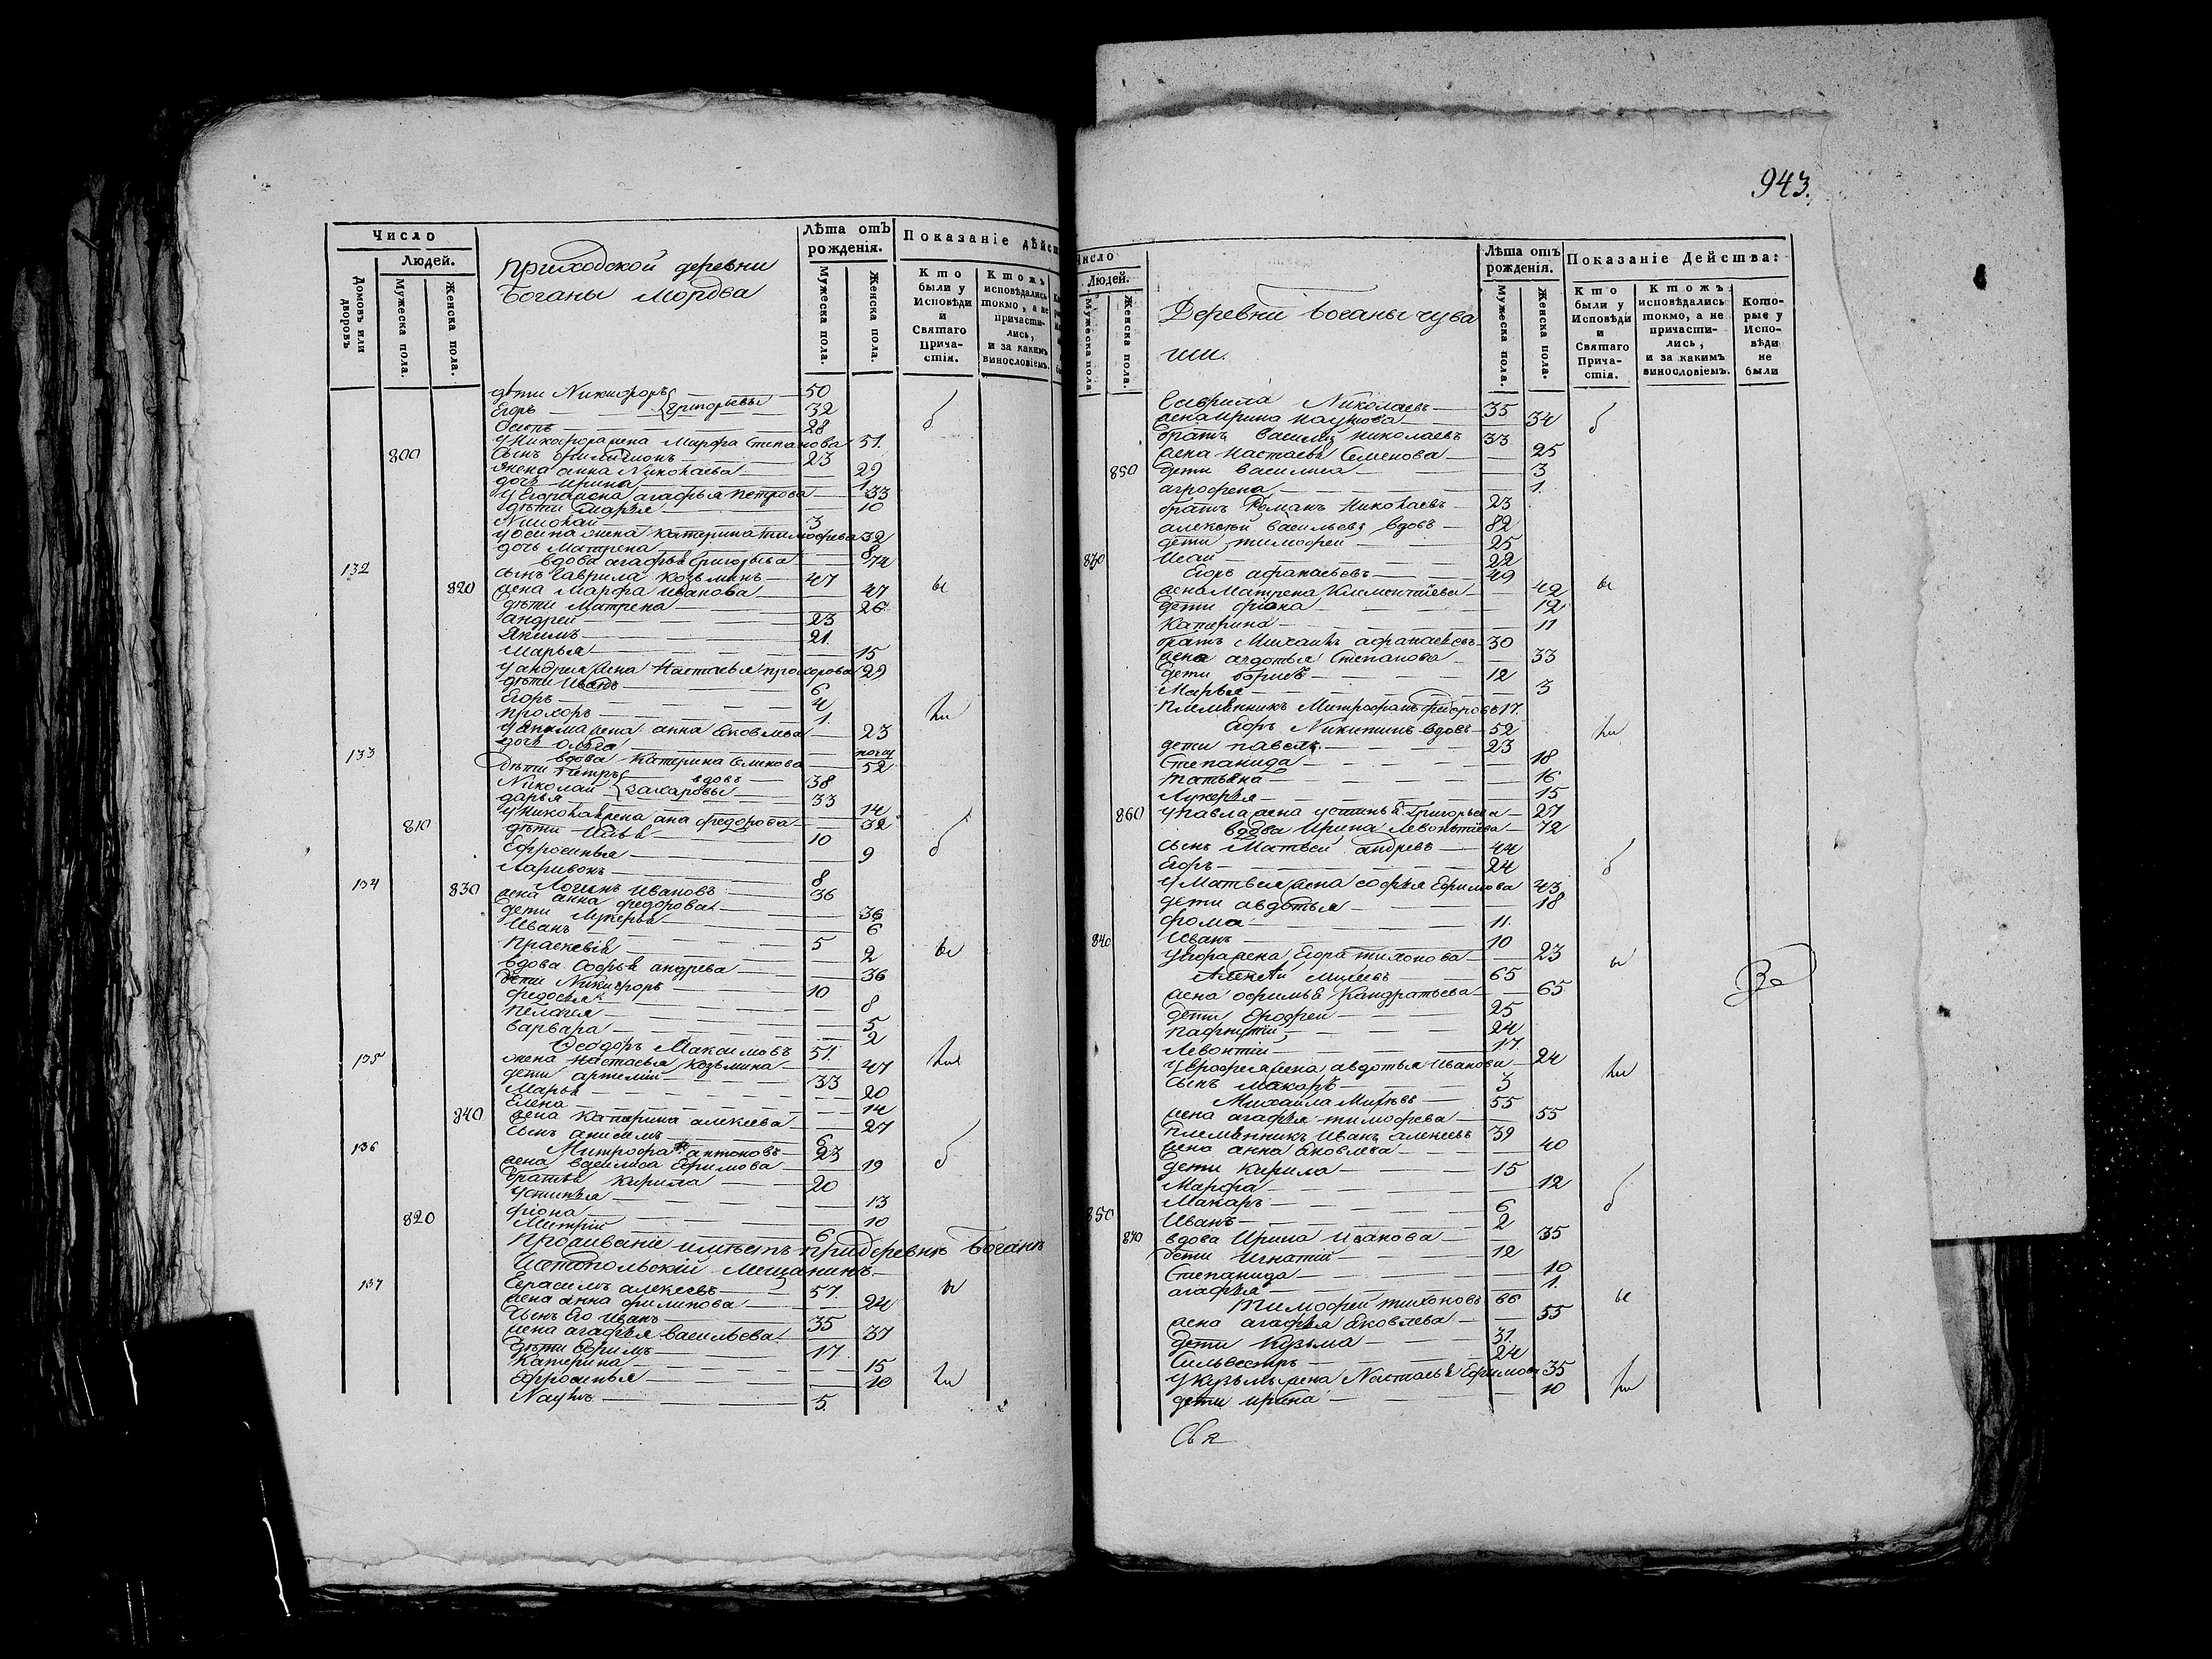 Число
Людей.
Домовъ или дворовъ
Мужеска пола.
Женска пола.
приходской деревни
Боганы Мордва
Лѣта отъ рожденія.
Мужеска пола.
Женска пола.
Показаніе дѣйс
Кто были у Исповѣди и Святаго Причастія.
Ктожъ исповѣдались токмо, а не причастились, и за какимъ винословіемъ.
дѣти Никифоръ 50
Егоръ Григорьевы 32
Осипъ 28
у Никифора жена Марфа Степанова 51.
800 сынъ 23
жена анна Николаева 29
дочь Ирина 1
у Егора жена агафья Петрова 33
дѣти Марья 10
Николай 3
у Осипа жена Катерина Тимофеева 32
дочь Матрена 8
132 вдова агафья Григорьева 74
сынъ Гаврила Козьминъ 47
820 жена Марфа Иванова 47
дѣти Матрена 26
андрей 23
Якимъ 21.
Марья 15
у андрея жена Настасья прохорова 29
дѣти Иванъ 6
Егоръ 4
прохоръ 1.
у Якима жена анна Яковлева 23
дочь Ольга
133 вдова Катерина Семенова 52
дѣти Петръ вдовъ 38
Николай Захаровы 33
дарья 14
у Николая жена ана федорова 32
810 дѣти Илья 10
Ефросинья 9
Ларивонъ 8
134 Логинъ Ивановъ 36
830 жена анна федорова 36
дети Лукерья 6
Иванъ 5
Праскевія 2
вдова Софья андрева 36
дети Никифоръ 10
федосья 8
Пелагея 5
варвара 2
135 Феодоръ Максимовъ 51.
жена Настасья Козьмина 47
дети артемій 33
Марья 20
Елена 14
840 жена Катерина алексева 27
сынъ анисимъ 6
136 Митрофанъ антоновъ 23
жена василиса Ефимова 19
братья Кирила 20
Устинья 13
фіона 10
820 Митрій 6
Проживаніе имѣетъ при деревнѣ Боганѣ
Чистопольскій Мещанинъ.
137 Герасимъ алексеевъ 57.
жена анна филипова 24
Сынъ Его Иванъ 35
жена агафья васильева 37
Дѣти Ефимъ 17.
Катерина 15
Ефросинья 10
Наумъ 5.
943.
Число
Людей.
Мужеска пола
Женска пола.
Деревни Боганы чува
ши.
Лѣта отъ рожденія.
Мужеска пола.
Женска пола.
Показаніе Действа:
Кто были у Исповѣди и Святаго Причастія.
Ктожъ исповѣдались токмо, а не причастились, и за какимъ винословіемъ.
Которые у Исповѣди не были
Гаврила Николаевъ 35
жена Ирина Наумова 34
братъ Василій Николаевъ 33
жена Настасья Семенова 25
850 дети василиса 3
агрофена 1.
братъ Романъ Николаевъ 23
алексѣй васильевъ вдовъ 82
дети тимофей 25
830 Исай 22
Егоръ афанасьевъ 49
жена Матрена Климентіева 42
дети фіона 12
Катерина 11
братъ Михаилъ афанасьевъ 30
жена авдотья Степанова 33
дети борисъ 12
Марья 3
племянникъ Митрофанъ федоровъ 17.
Егоръ Никитинъ вдовъ 52
дети павелъ 23
Степанида 18
татьяна 16
Лукерья 15
860 у павла жена устинья Григорьева 27
вдова Ирина Левонтіева 72
сынъ Матвей андревъ 44
Егоръ 24
у Матвея жена софья Ефимова 43
дети авдотья 18
фома 11.
840 Иванъ 10
у Егора жена тихонова 23
Алексѣй Михеевъ 65
жена офимья Кандратьева 65
дети Ерофей 25
Пафнутій 24
Левонтій 17.
у Ерофея жена авдотья Иванова 24
сынъ Макаръ 3
Михаила Михѣевъ 55
жена агафья тимофева 55
племянникъ Иванъ алексеевъ 39
жена анна Яковлева 40
дети Кирила 15
Марфа 12
Макаръ 6
850 Иванъ 2
870 вдова Ирина Иванова 35
дети Игнатій 12
Степанида 10
агафья 1.
Тимофей тихоновъ 66
жена агафья Яковлева 55
дети Кузьма 31.
Сильвестръ 24
у кузьмы жена Настасья Ефимова 35
дети ирина 10
Свя